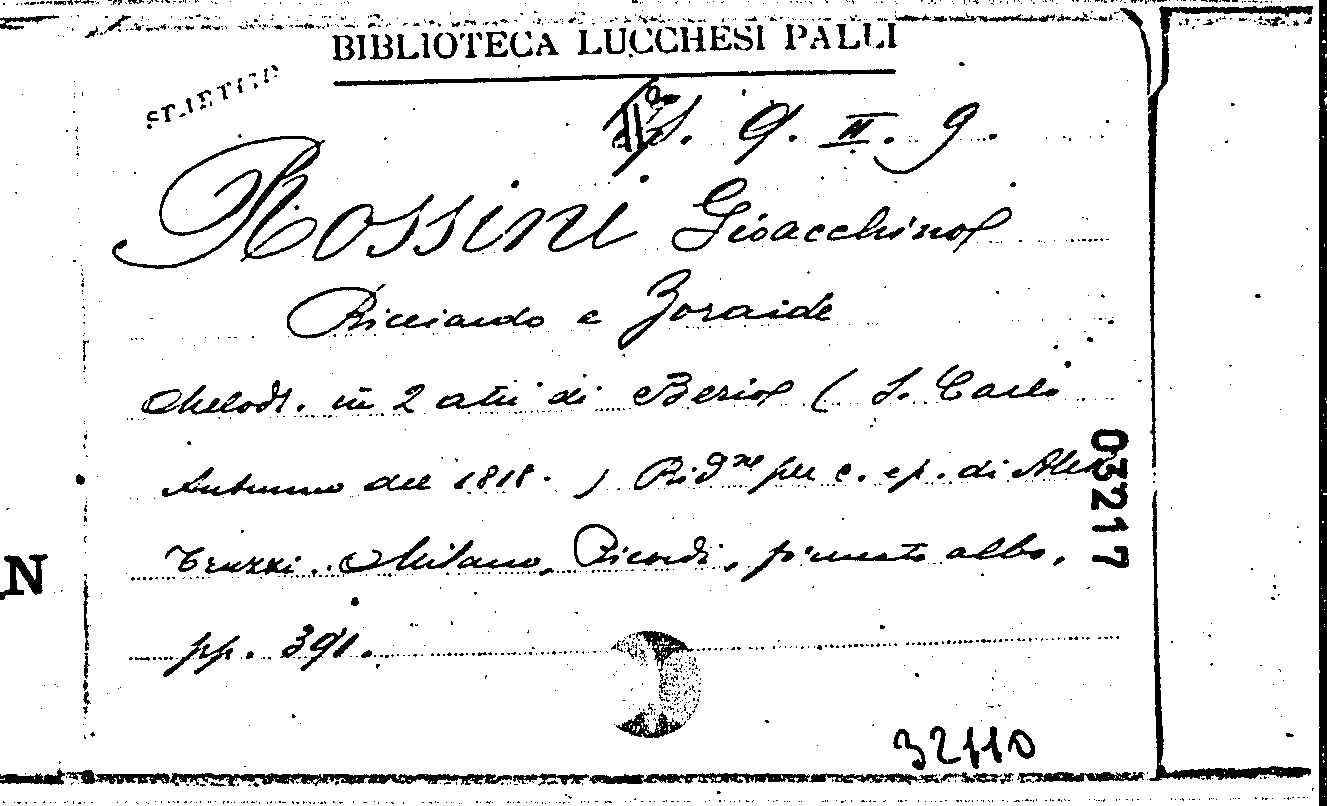 BIBLIOTECA LUCCHESI PALLI
9. II. 9.
Rossini Gioacchino
Ricciardo e Zoraide
Melodr. in 2 atti di Berio (S. Carlo
Autunno del 1818.) Rid.ne per c. e p. di Aless.
Truzzi. Milano, Ricordi, formato albo,
pp. 391.
03217
32110
N